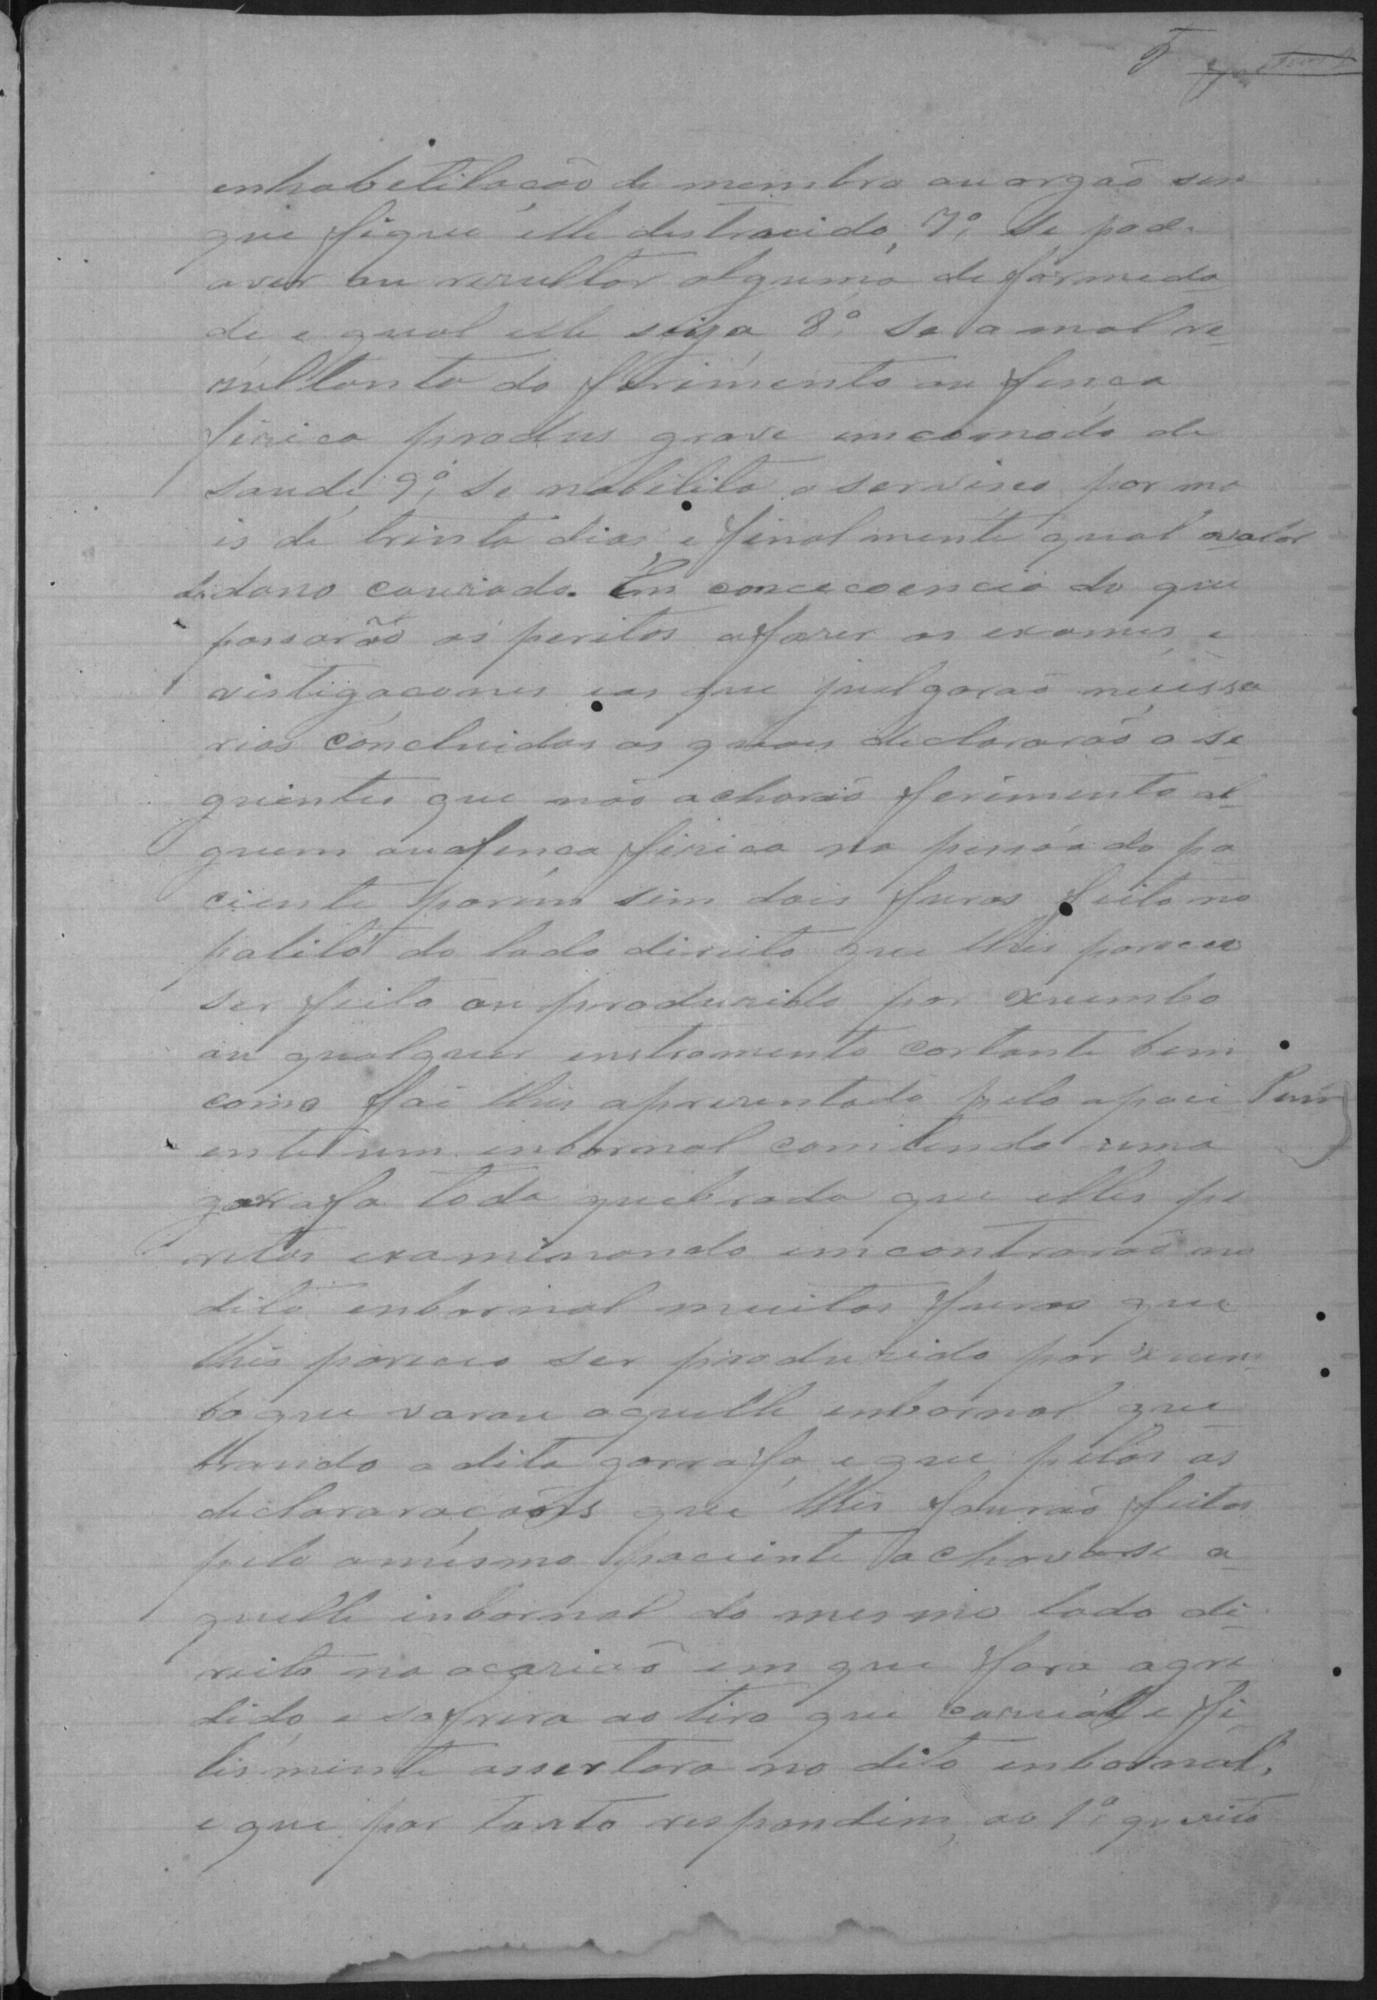 5
enhabetilação de membro ou orgão sem
que fique elle destrauido, 7º, Se pode
aver ou rezultar alguma deformeda
de e qual elle seija 8º, Se a mal re-
zultante do ferimento ou fença
fizica produs grave emcomodo de
saude, 9º, se nabilita o servisco por ma
is de trinta dias e finalmente qual o valor
do dano cauzado. Em concecoencia do que
passarão os peritos a fazer os exames e
vistigacones e as que julgarão neuissa
rias concluidas as quaes declararão o se
guintes que não acharão ferimento al-
guem au fença fizica na pessôa do pa
ciente porem sim dois furos feito no
palitó do lado direito que lhes pareceo
ser feito ou produzido por xumbo
au qualquer enstromento cortante bem
como foi lhes aprezentado pelo apaci
ente um enbornal comtendo uma
garrafa toda quebrada que elles pe
ritos examinando emcontrarão no
dito enbornal muitos furos que
lhes pareceo ser produzido por xum-
bo que varou aquelle enbornal que
brando a dita garrafa e que pelas as
declararacões que lhes fourão feitas
pelo amesmo paciente achavase a-
quelle inbornal do mesmo lado di-
reito na acazião em que fora agre
dido e sofrera ao tiro que cazual e fi
lismente assertara no dito enbornal,
e que por tanto respondem, ao 1º quezito